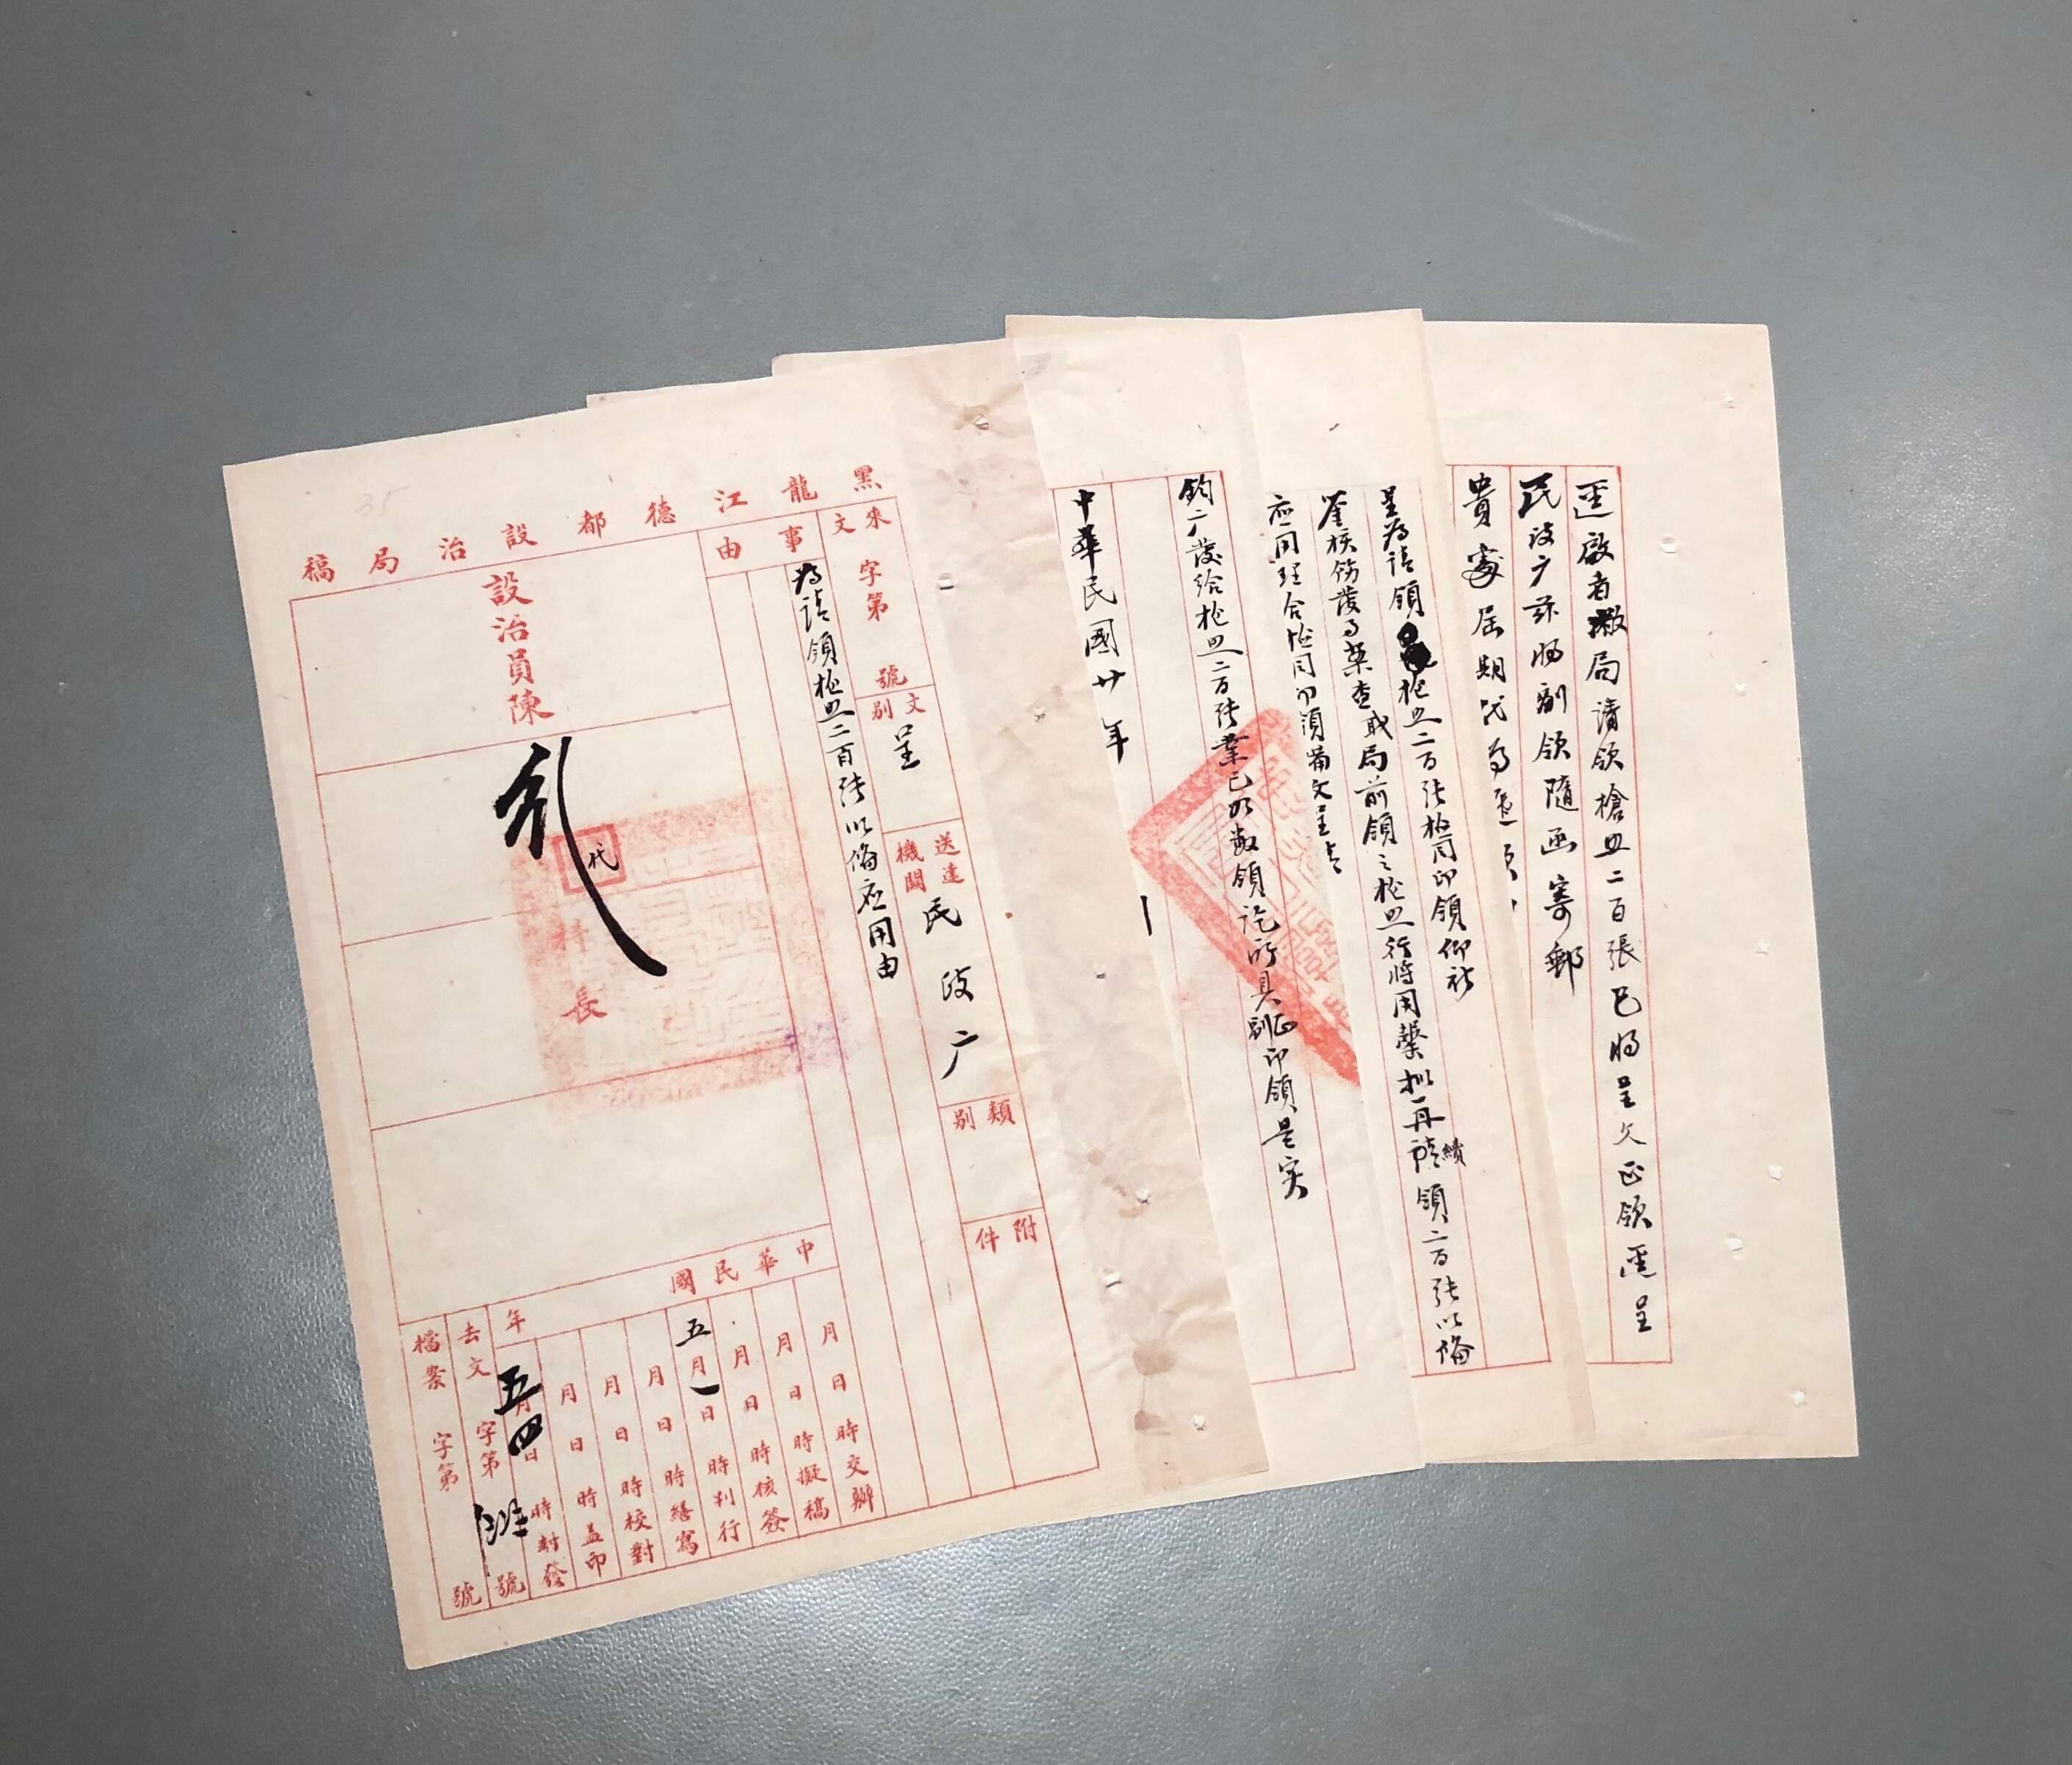 逕啟者敝局請領槍照二百張已將呈文正領逕呈
民政廳茲將副領隨函寄郵
貴家屆期代為
呈為請領槍照二百張檢同印領仰祈
鑒核飭發事案查職局前領之槍照行將用罄擬再續請領二百張以備
應用理合檢同印領備文呈請
鈞廳發給槍照二百張業已如數領訖所具副正印領是實
中華民國廿年
黑龍江德都設治局稿
來文 字第 號
文別 呈
送達機關 民政廳
類別
附件
事由
為請領槍照二百張以備應用由
設治員陳
代
科長
中華民國 年
月 日 時交辦
月 日 時擬稿
月 日 時核簽
五月一日 時判行
月 日 時繕寫
月 日 時校對
月 日 時蓋印
五月四日 時封發
去文 字第 號
檔案 字第 號
35